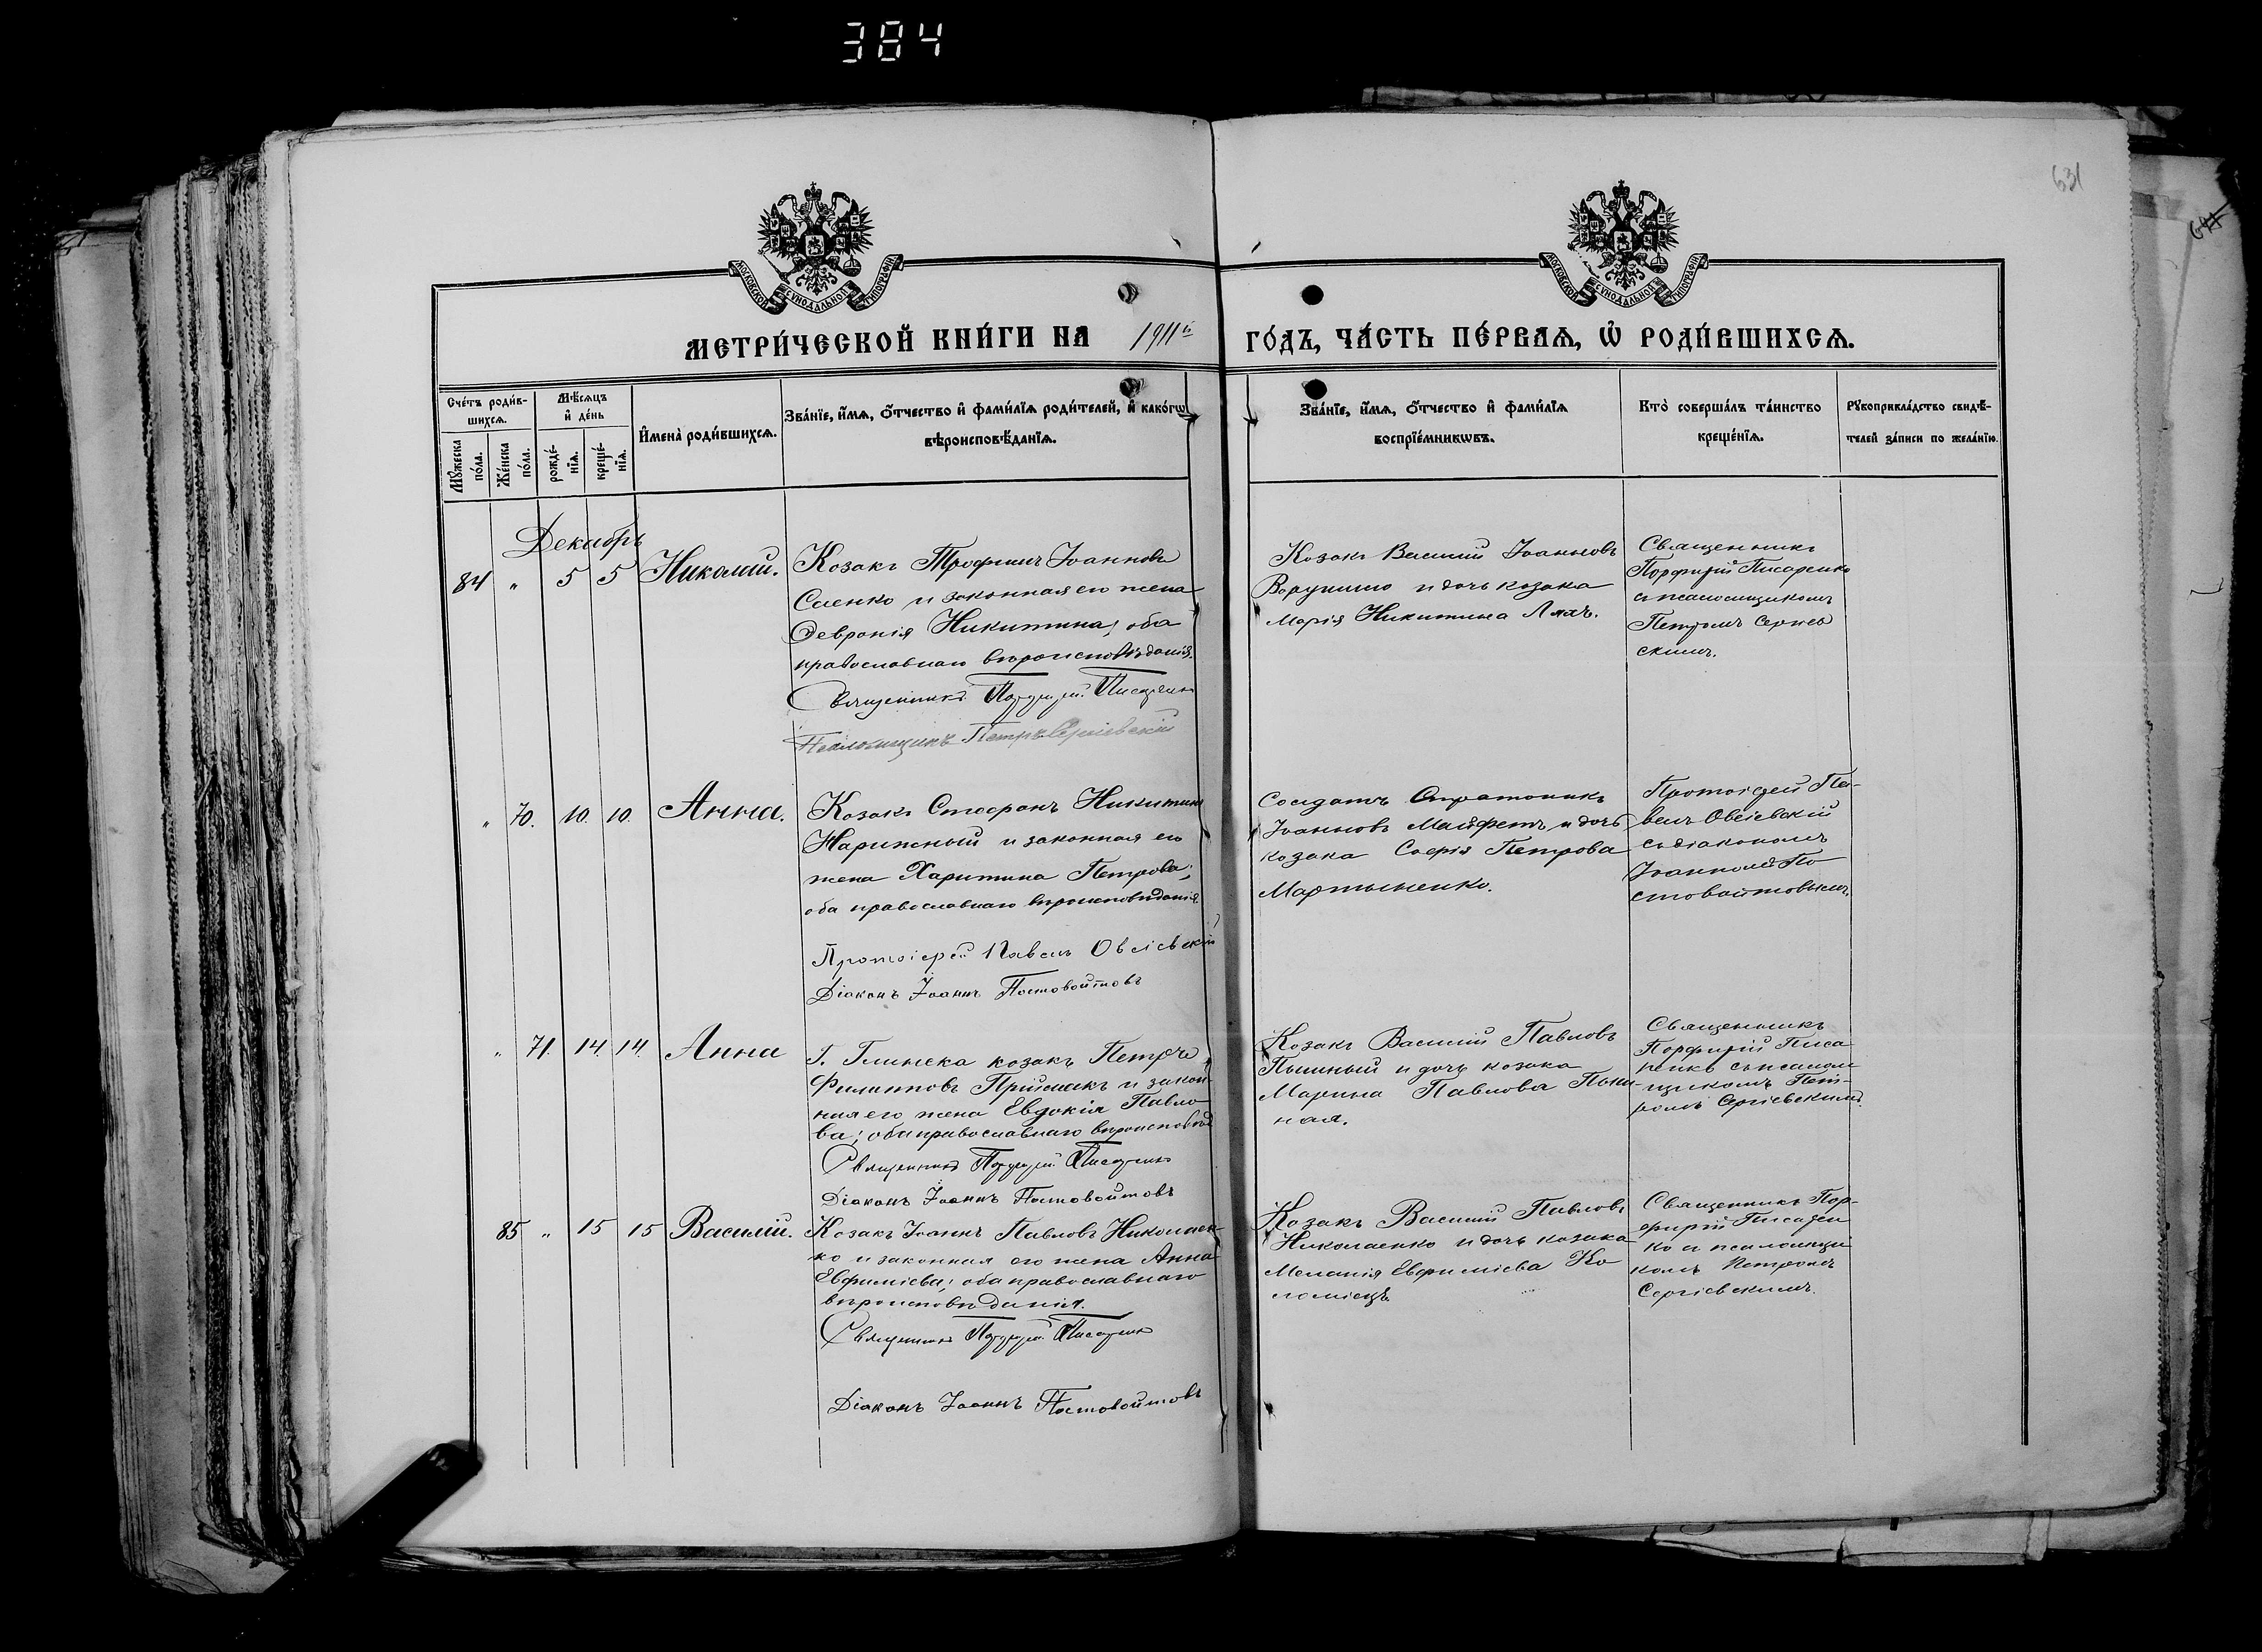 384
631
МОСКОВСКОЙ СѴНОДАЛЬНОЙ ТИПОГРАФІИ
МОСКОВСКОЙ СѴНОДАЛЬНОЙ ТИПОГРАФІИ
МЕТРИ́ЧЕСКОЙ КНИ́ГИ НА 1911й ГО́ДЪ, ЧА́СТЬ ПЕ́РВАѦ, Ѡ҆ РОДИ́ВШИХСѦ.
Сче́тъ роди́в-
шихсѧ.
Мꙋ́жеска по́ла.
Же́нска по́ла.
Мѣ́сѧцъ
и҆ де́нь
рожде́-
нїѧ.
креще́-
нїѧ.
И҆мена̀ роди́вшихсѧ.
Зва́нїе, и҆́мѧ, ѻ҆́тчество и҆ фами́лїѧ роди́телей, и҆ како́гѡ
вѣроисповѣ́данїѧ.
Зва́нїе, и҆́мѧ, ѻ҆́тчество и҆ фами́лїѧ
воспрїе́мникѡвъ.
Кто̀ соверша́лъ та́инство
креще́нїѧ.
Рꙋкоприкла́дство свидѣ́-
телей за́писи по жела́нїю.
Декабрь
84 " 5 5 Николай.
Козакъ Трофимъ Іоанновъ
Саенко и законная его жена
Февронія Никитина; оба
православнаго вѣроисповѣданія.
Священникъ Порфирій Писаренко
Псаломщикъ Петръ Сергіевскій
Козакъ Василій Іоанновъ
и дочь козака
Марія Никитина Ляхъ.
Священникъ
Порфирій Писаренко
съ псаломщикомъ
Петромъ Сергіев
скимъ.
" 70. 10. 10. Анна.
Козакъ Стефанъ Никитинъ
Нарижный и законная его
жена Харитина Петрова;
оба православнаго вѣроисповѣданія.
Протоіерей Павелъ Овсіевскій
Діаконъ Іоаннъ Постовойтовъ
Солдатъ Стратоникъ
Іоанновъ Майфетъ и дочь
козака Софія Петрова
Мартыненко.
Протоіерей Па-
велъ Овсіевскій
съ діакономъ
Іоанномъ По
стовойтовымъ.
" 71. 14. 14. Анна
Г. Глинска козакъ Петръ
Филипповъ Приймакъ и закон-
ная его жена Евдокія Павло
ва; оба православнаго вѣроисповѣд
Священникъ Порфирій Писаренко
Діаконъ Іоаннъ Постовойтовъ
Козакъ Василій Павловъ
Пышный и дочь козака
Марина Павлова Пыш-
ная.
Священникъ
Порфирій Писа
ренко съ псалом
щикомъ Пет-
ромъ Сергіевскимъ.
85 " 15 15 Василій.
Козакъ Іоаннъ Павловъ Николаен-
ко и законная его жена Анна
Евфиміева; оба православнаго
вѣроисповѣданія.
Священникъ Порфирій Писаренко
Діаконъ Іоаннъ Постовойтовъ
Козакъ Василій Павловъ
Николаенко и дочь козака
Меланія Евфиміева Ко
ломіецъ.
Священникъ Пор-
фирій Писарен
ко съ псаломщи
комъ Петромъ
Сергіевскимъ.